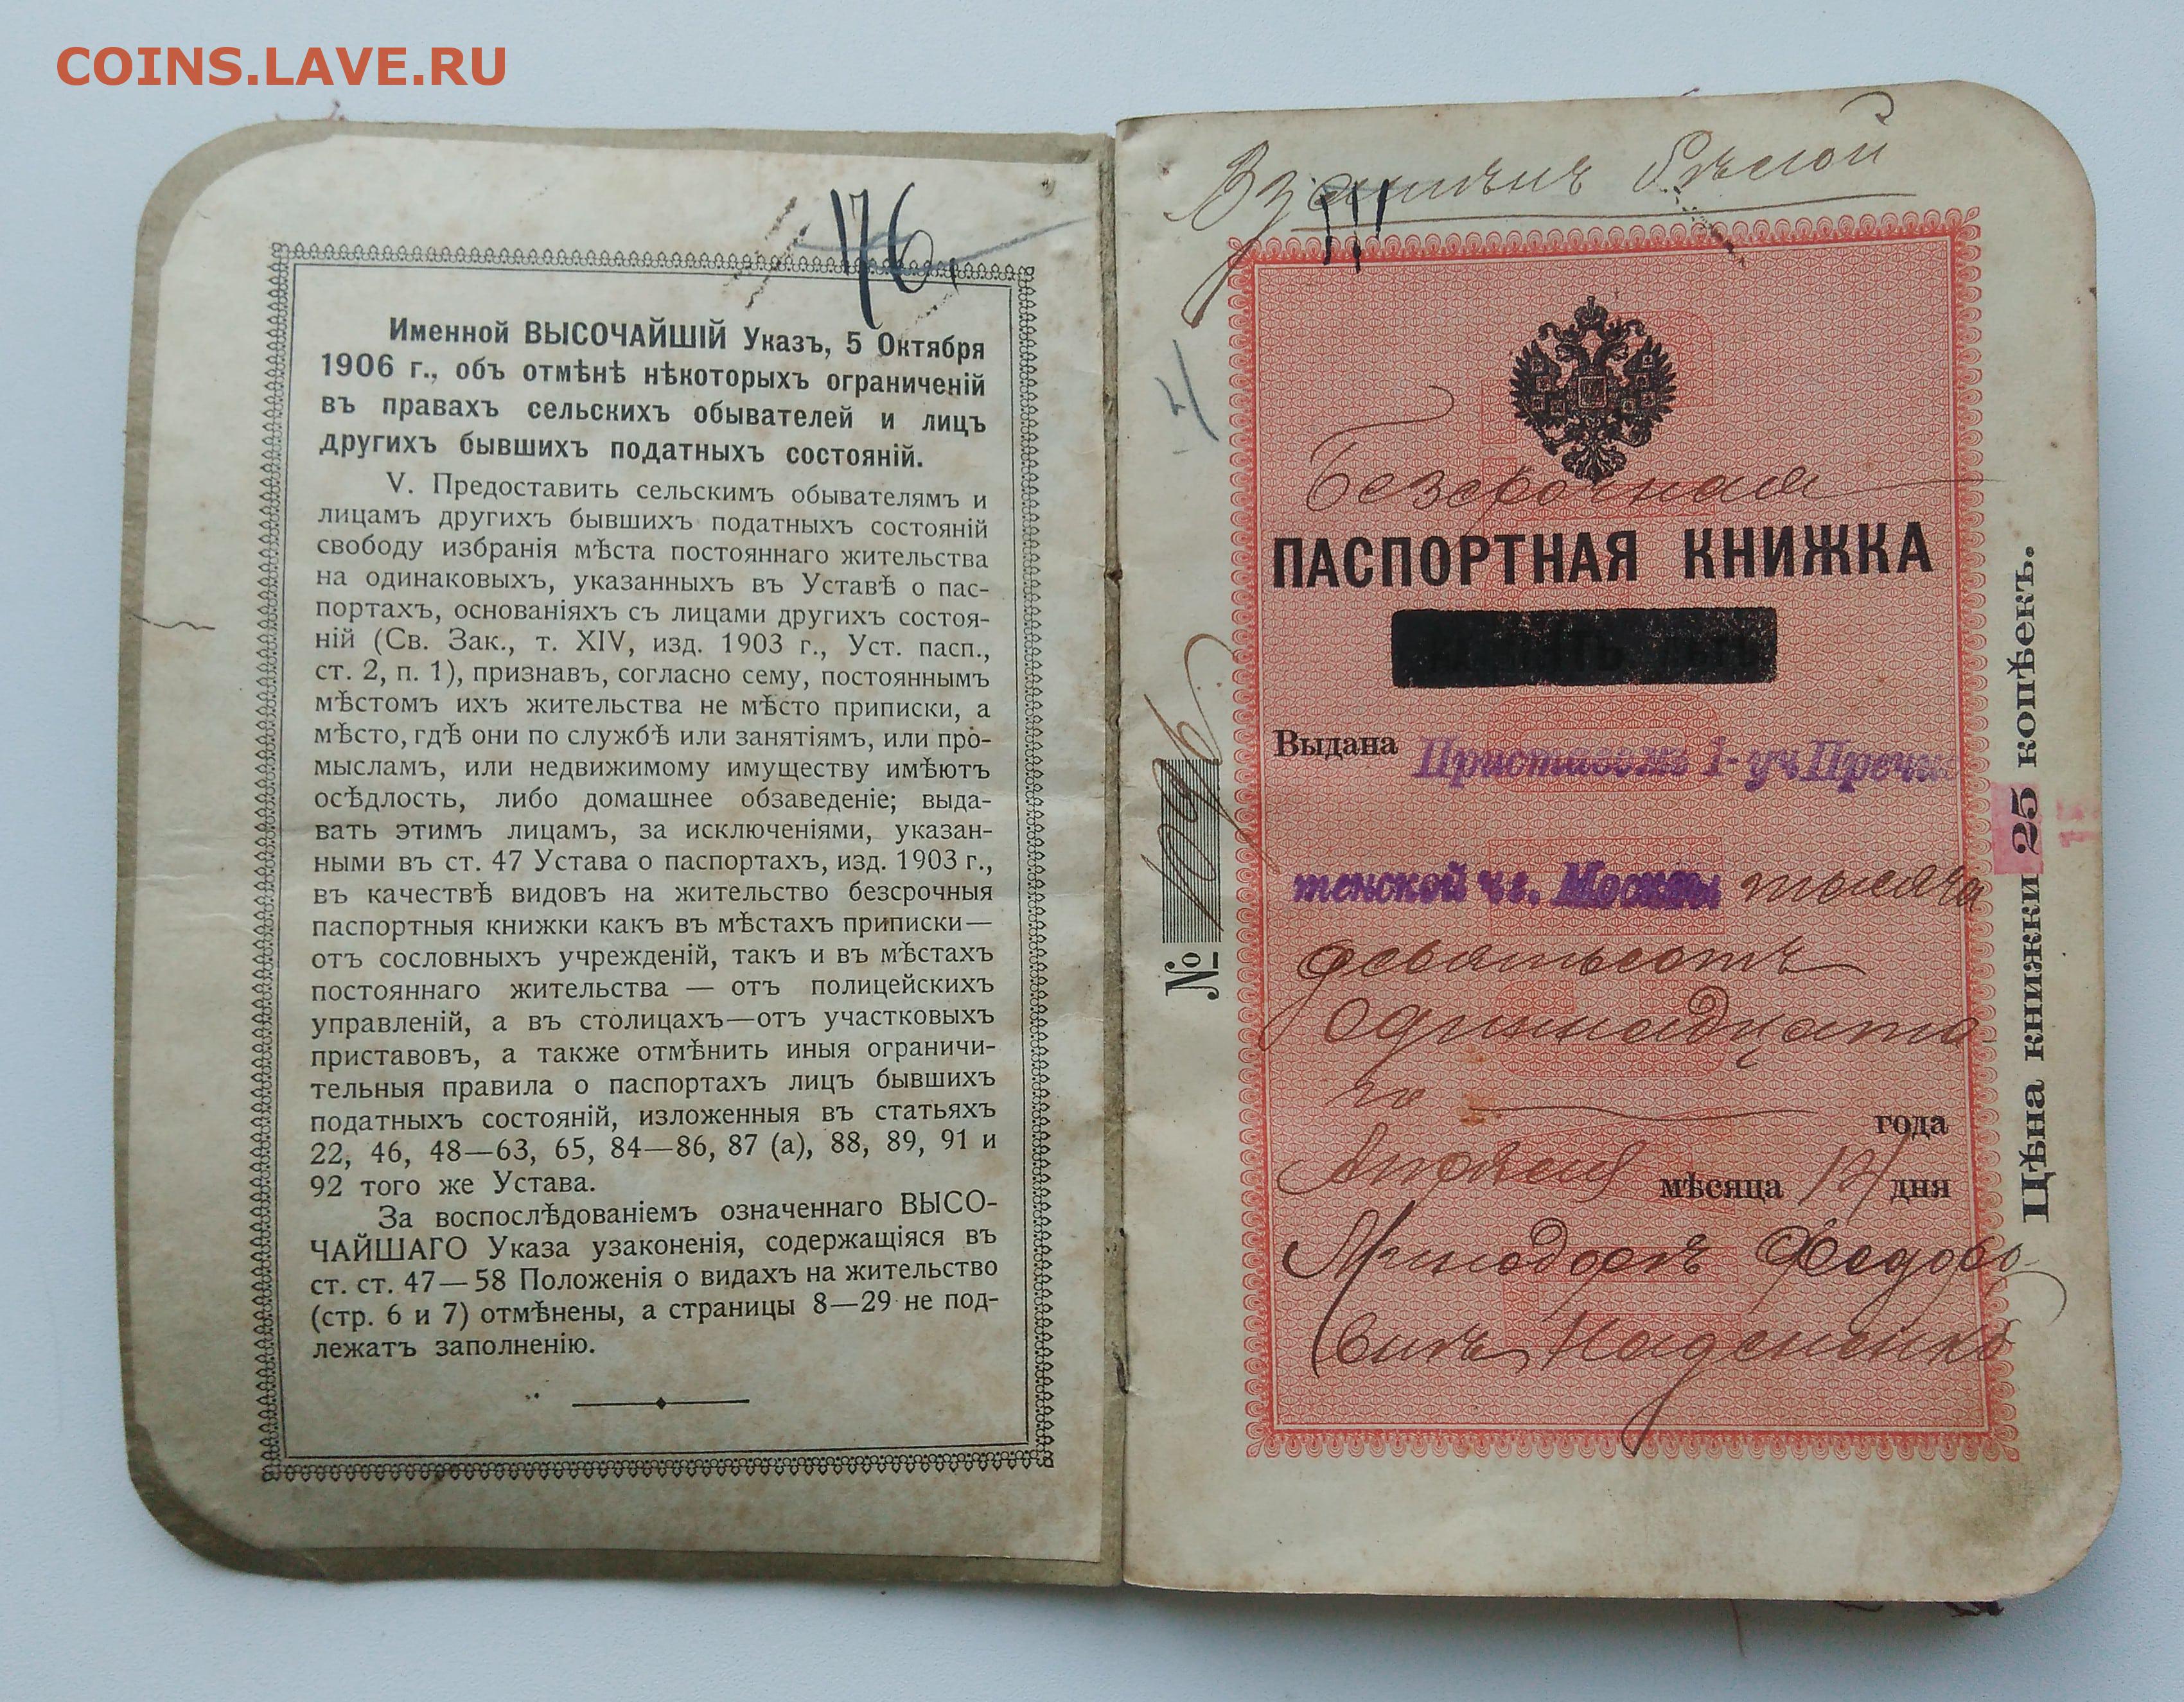 COINS.LAVE.RU
176.
Именной ВЫСОЧАЙШІЙ Указъ, 5 Октября
1906 г., объ отмѣнѣ нѣкоторыхъ ограниченій
въ правахъ сельскихъ обывателей и лицъ
другихъ бывшихъ податныхъ состояній.
V. Предоставить сельскимъ обывателямъ и
лицамъ другихъ бывшихъ податныхъ состояній
свободу избранія мѣста постояннаго жительства
на одинаковыхъ, указанныхъ въ Уставѣ о пас-
портахъ, основаніяхъ съ лицами другихъ состоя-
ній (Св. Зак., т. XIV, изд. 1903 г., Уст. пасп.,
ст. 2, п. 1), признавъ, согласно сему, постояннымъ
мѣстомъ ихъ жительства не мѣсто приписки, а
мѣсто, гдѣ они по службѣ или занятіямъ, или про-
мысламъ, или недвижимому имуществу имѣютъ
осѣдлость, либо домашнее обзаведеніе; выда-
вать этимъ лицамъ, за исключеніями, указан-
ными въ ст. 47 Устава о паспортахъ, изд. 1903 г.,
въ качествѣ видовъ на жительство безсрочныя
паспортныя книжки какъ въ мѣстахъ приписки—
отъ сословныхъ учрежденій, такъ и въ мѣстахъ
постояннаго жительства — отъ полицейскихъ
управленій, а въ столицахъ—отъ участковыхъ
приставовъ, а также отмѣнить иныя ограничи-
тельныя правила о паспортахъ лицъ бывшихъ
податныхъ состояній, изложенныя въ статьяхъ
22, 46, 48—63, 65, 84—86, 87 (а), 88, 89, 91 и
92 того же Устава.
За воспослѣдованіемъ означеннаго ВЫСО-
ЧАЙШАГО Указа узаконенія, содержащіяся въ
ст. ст. 47—58 Положенія о видахъ на жительство
(стр. 6 и 7) отмѣнены, а страницы 8—29 не под-
лежатъ заполненію.
Взамѣнъ
Безсрочная
ПАСПОРТНАЯ КНИЖКА
Выдана Приставомъ 1-уч. Пречис
тенской ч. г. Москвы тысяча
девятьсотъ
Одиннадцата
го года
Апрѣля мѣсяца 12 дня
Федоро
вичъ
№ 1096
Цѣна книжки 25 копѣекъ.